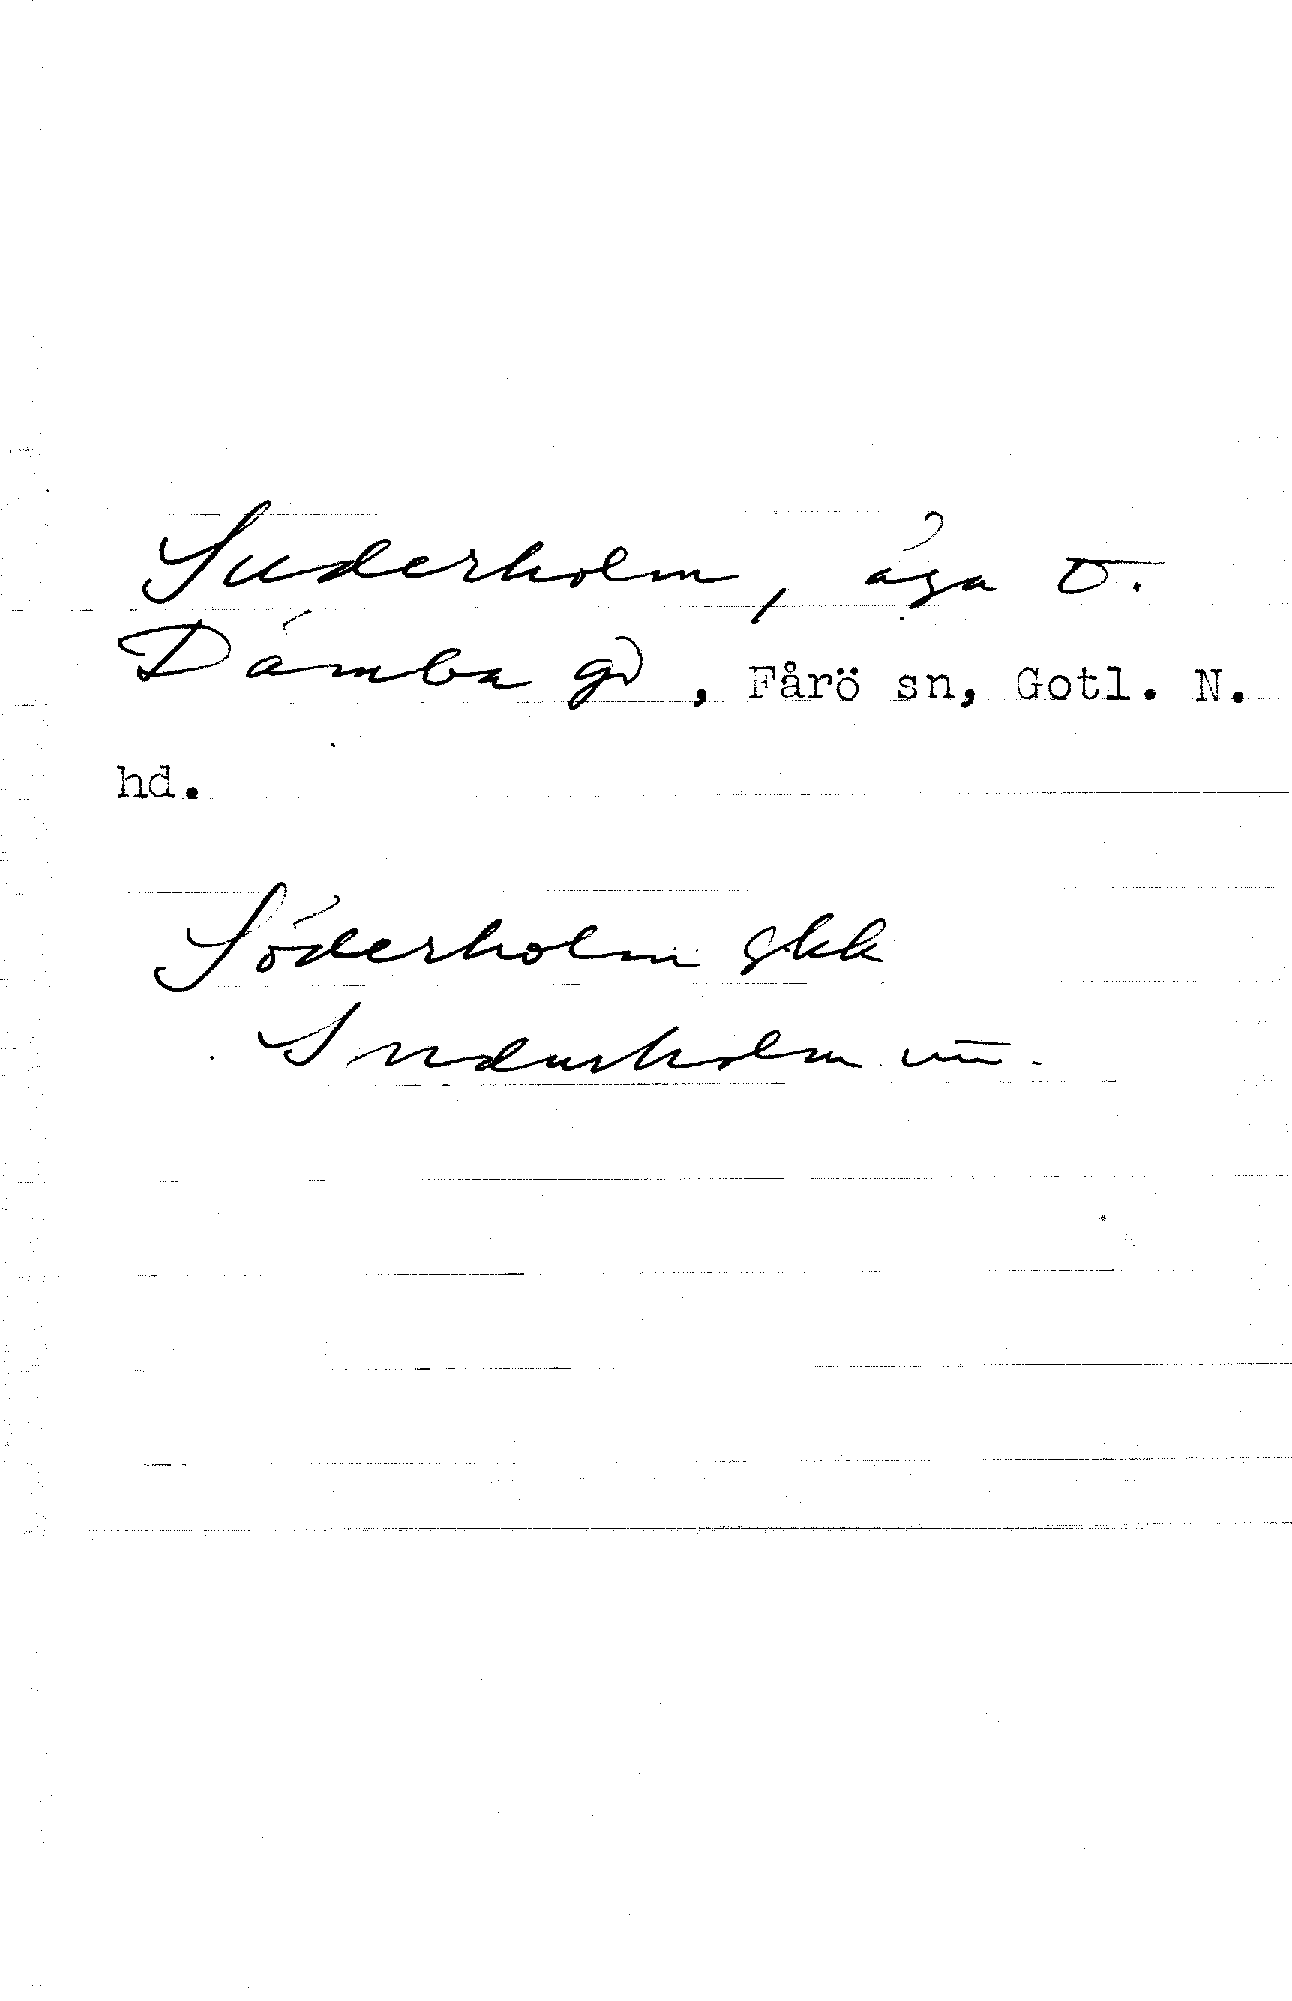 Suderholm, äga t.
Dämba gd, Fårö sn, Gotl. N.
hd.
Söderholm gkk
Suderholm